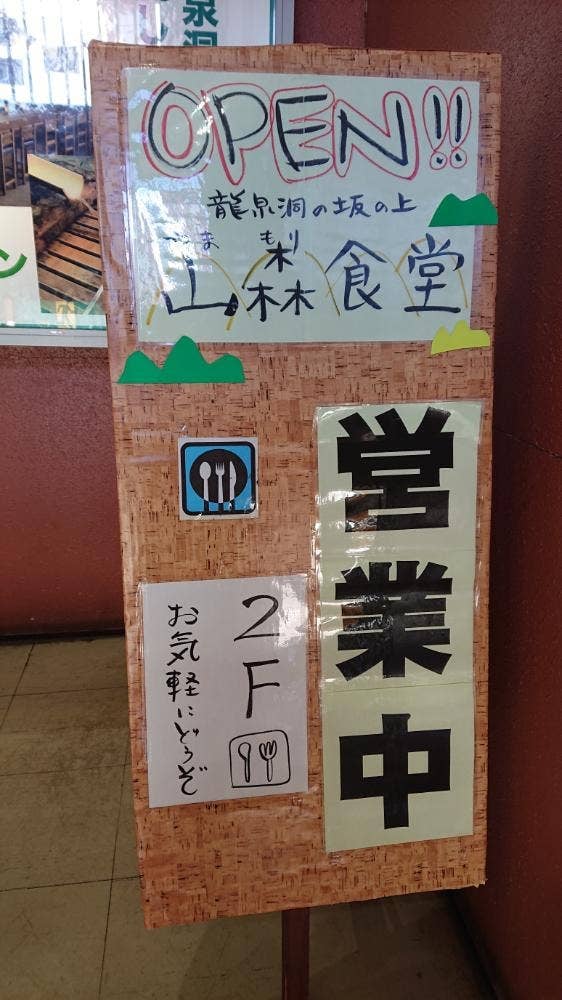 泉洞
ン
OPEN!!
龍泉洞の坂の上
やま もり
山森食堂
営業中
2F
お気軽にどうぞ